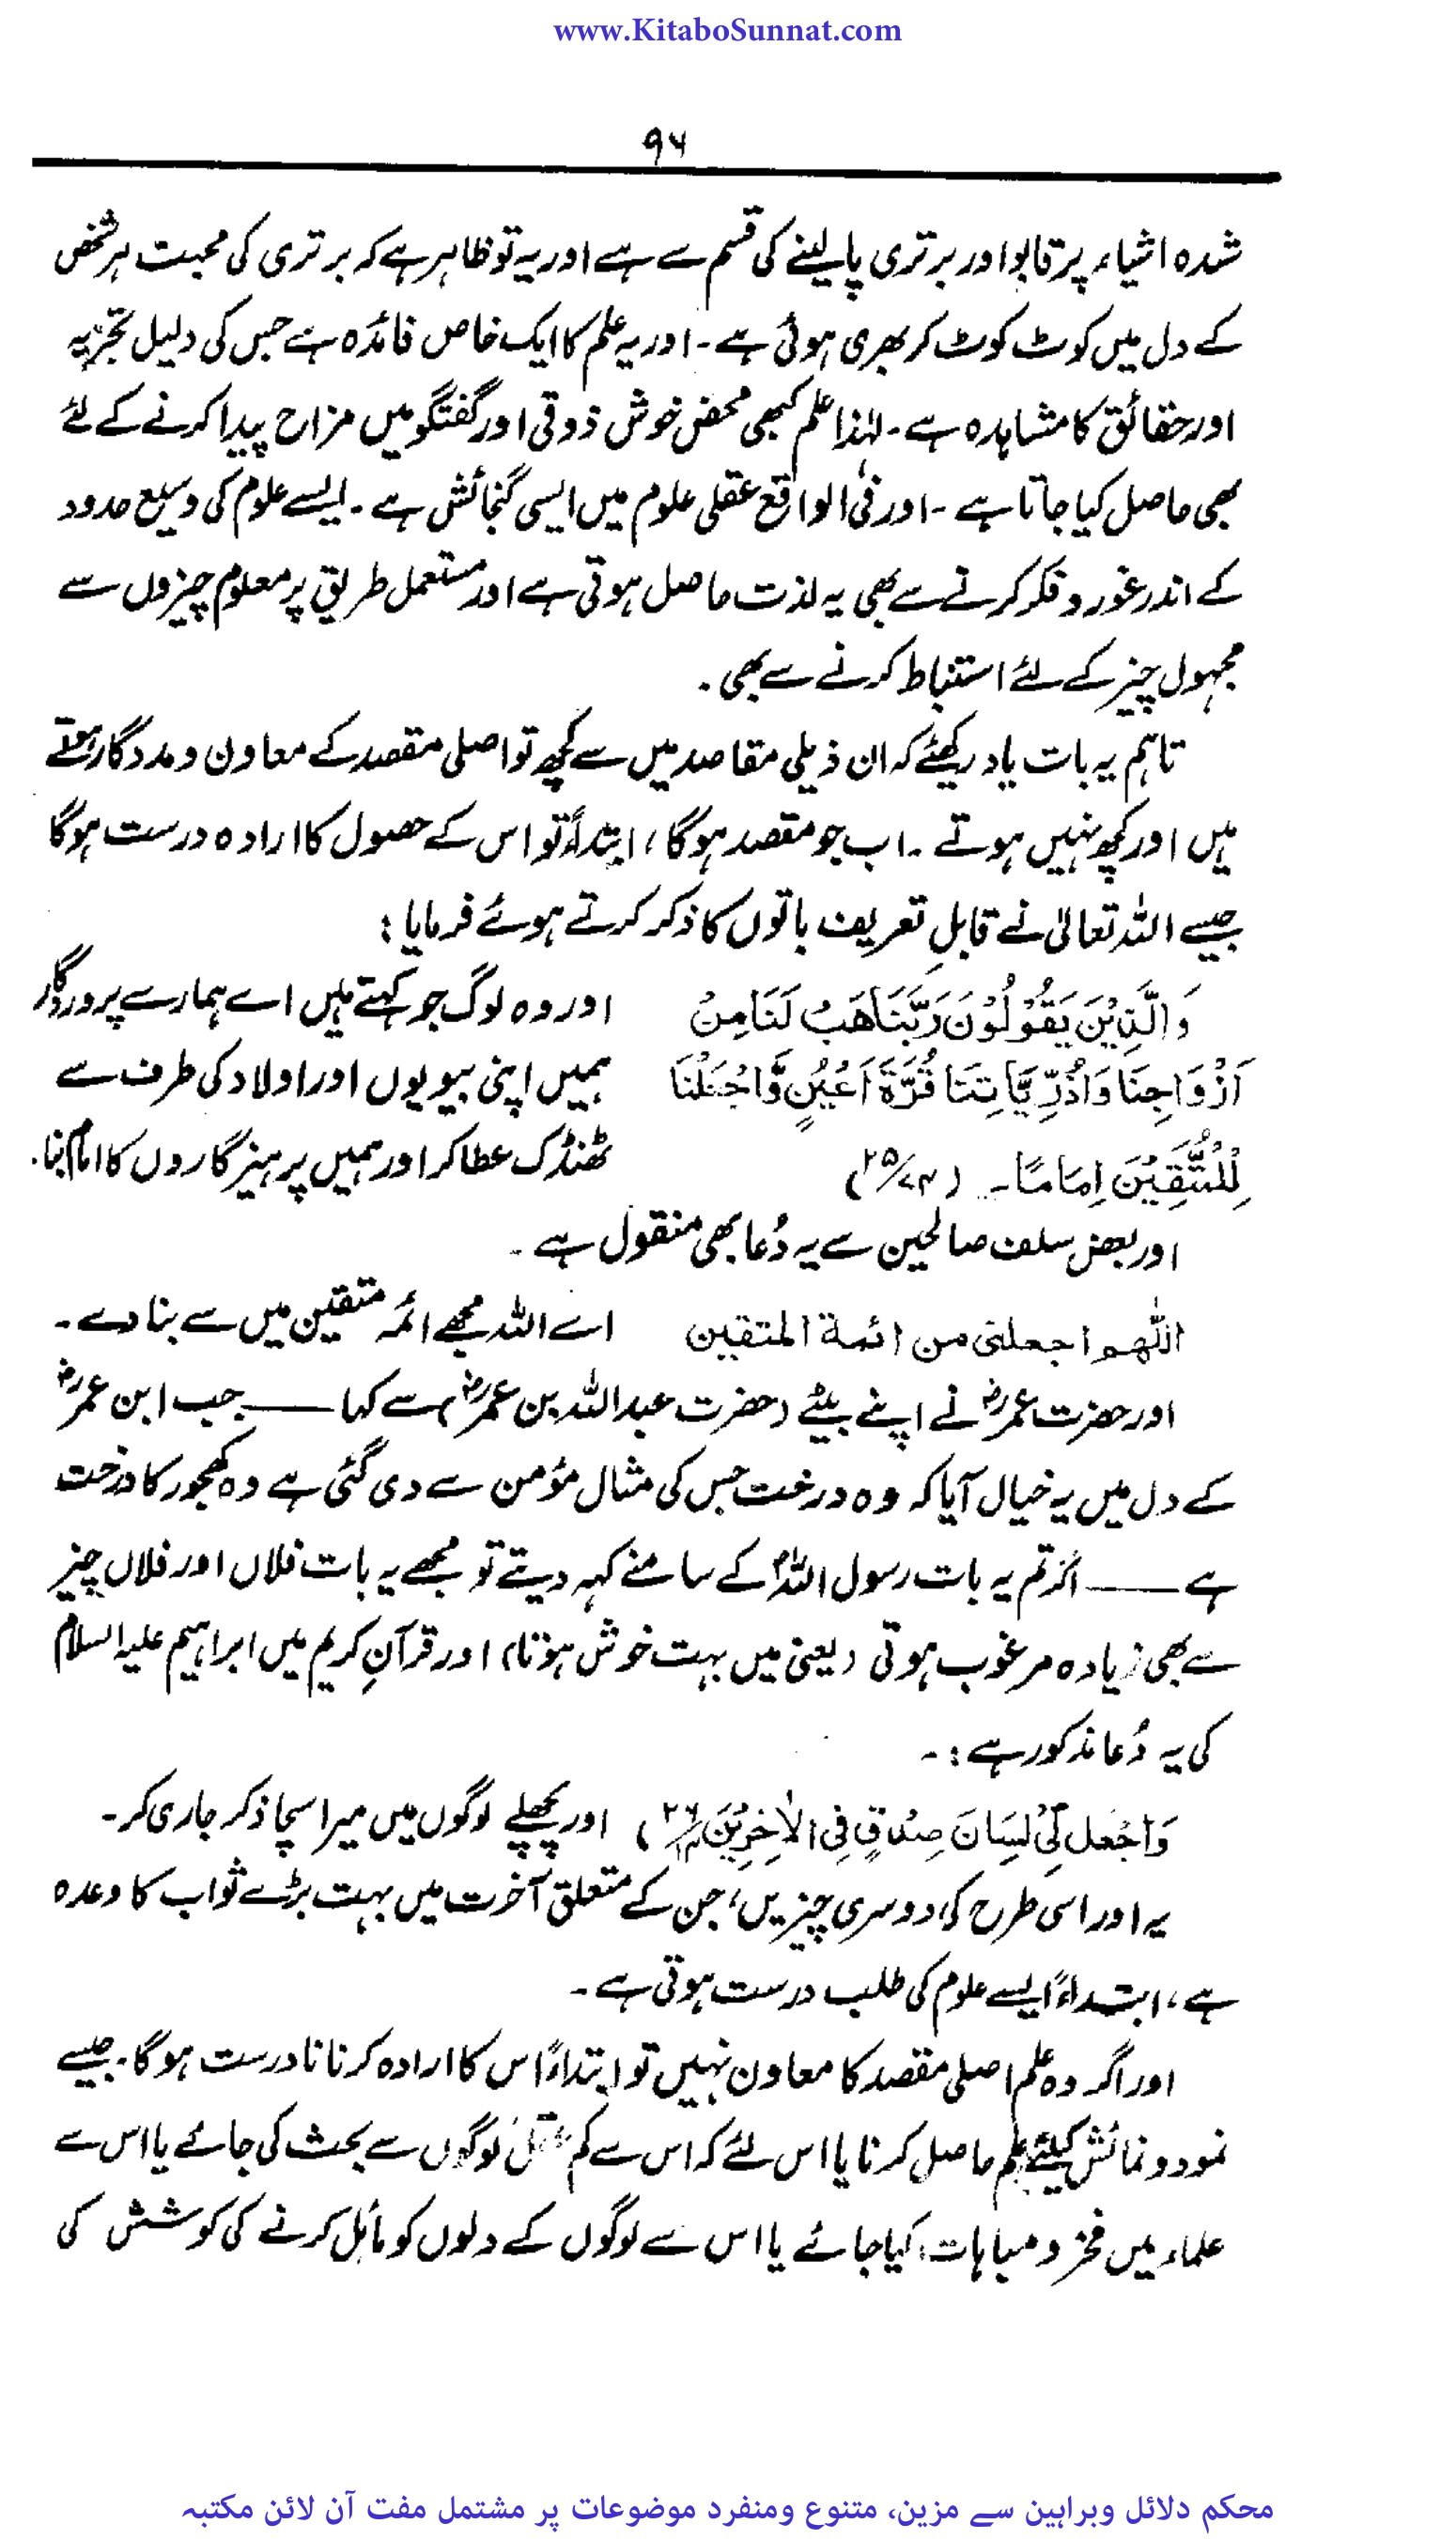 www.KitaboSunnat.com
۹۶
شدہ اشیاء پر قابو اور برتری پا لینے کی قسم سے ہے اور یہ تو ظاہر ہے کہ برتری کی محبت ہر شخص
کے دل میں کوٹ کوٹ کر بھری ہوئی ہے ۔ اور یہ علم کا ایک خاص فائدہ ہے جس کی دلیل تجزیہ
اور حقائق کا مشاہدہ ہے ۔ لہٰذا علم کبھی محض خوش ذوقی اور گفتگو میں مزاح پیدا کرنے کے لئے
بھی حاصل کیا جاتا ہے ۔ اور فی الواقع عقلی علوم میں ایسی گنجائش ہے ۔ ایسے علوم کی وسیع حدود
کے اندر غور و فکر کرنے سے بھی یہ لذت حاصل ہوتی ہے اور مستعمل طریق پر معلوم چیزوں سے
مجہول چیز کے لئے استنباط کرنے سے بھی ۔
تاہم یہ بات یاد رکھئے کہ ان ذیلی مقاصد میں سے کچھ تو اصلی مقصد کے معاون و مددگار ہوتے
ہیں اور کچھ نہیں ہوتے ۔ اب جو مقصد ہوگا ، ابتداءً تو اس کے حصول کا ارادہ درست ہوگا
جیسے اللہ تعالیٰ نے قابلِ تعریف باتوں کا ذکر کرتے ہوئے فرمایا :
وَالَّذِيْنَ يَقُوْلُوْنَ رَبَّنَا هَبْ لَنَا مِنْ اور وہ لوگ جو کہتے ہیں اے ہمارے پروردگار
اَزْوَاجِنَا وَاذُرِّيّٰاتِنَا قُرَّةَ اَعْيُنٍ وَّاجْعَلْنَا ہمیں اپنی بیویوں اور اولاد کی طرف سے
لِلْمُتَّقِيْنَ اِمَامًا ۔ (۲۵/۷۴) ٹھنڈک عطا کر اور ہمیں پرہیزگاروں کا امام بنا ۔
اور بعض سلف صالحین سے یہ دُعا بھی منقول ہے ۔
اللّٰهم اجعلنی من ائمة المتقین اے اللہ مجھے ائمہ متقین میں سے بنا دے ۔
اور حضرت عمرؓ نے اپنے بیٹے (حضرت عبداللہ بن عمرؓ) سے کہا —— جب ابن عمرؓ
کے دل میں یہ خیال آیا کہ وہ درخت جس کی مثال مؤمن سے دی گئی ہے وہ کھجور کا درخت
ہے —— اگر تم یہ بات رسول اللہؐ کے سامنے کہہ دیتے تو مجھے یہ بات فلاں اور فلاں چیز
سے بھی زیادہ مرغوب ہوتی (یعنی میں بہت خوش ہوتا) اور قرآنِ کریم میں ابراہیم علیہ السلام
کی یہ دُعا مذکور ہے : ۔
وَاجْعَل لِّیْ لِسَانَ صِدْقٍ فِی الْاٰخِرِيْنَ اور پچھلے لوگوں میں میرا سچا ذکر جاری کر ۔
یہ اور اسی طرح کی دوسری چیزیں ، جن کے متعلق آخرت میں بہت بڑے ثواب کا وعدہ
ہے ، ابتداءً ایسے علوم کی طلب درست ہوتی ہے ۔
اور اگر وہ علم اصلی مقصد کا معاون نہیں تو ابتداءً اس کا ارادہ کرنا نادرست ہوگا ۔ جیسے
نمود و نمائش کیلئے علم حاصل کرنا یا اس لئے کہ اس سے کم عقل لوگوں سے بحث کی جائے یا اس سے
علماء میں فخر و مباہات کیا جائے یا اس سے لوگوں کے دلوں کو مائل کرنے کی کوشش کی
محکم دلائل وبراہین سے مزین، متنوع ومنفرد موضوعات پر مشتمل مفت آن لائن مکتبہ